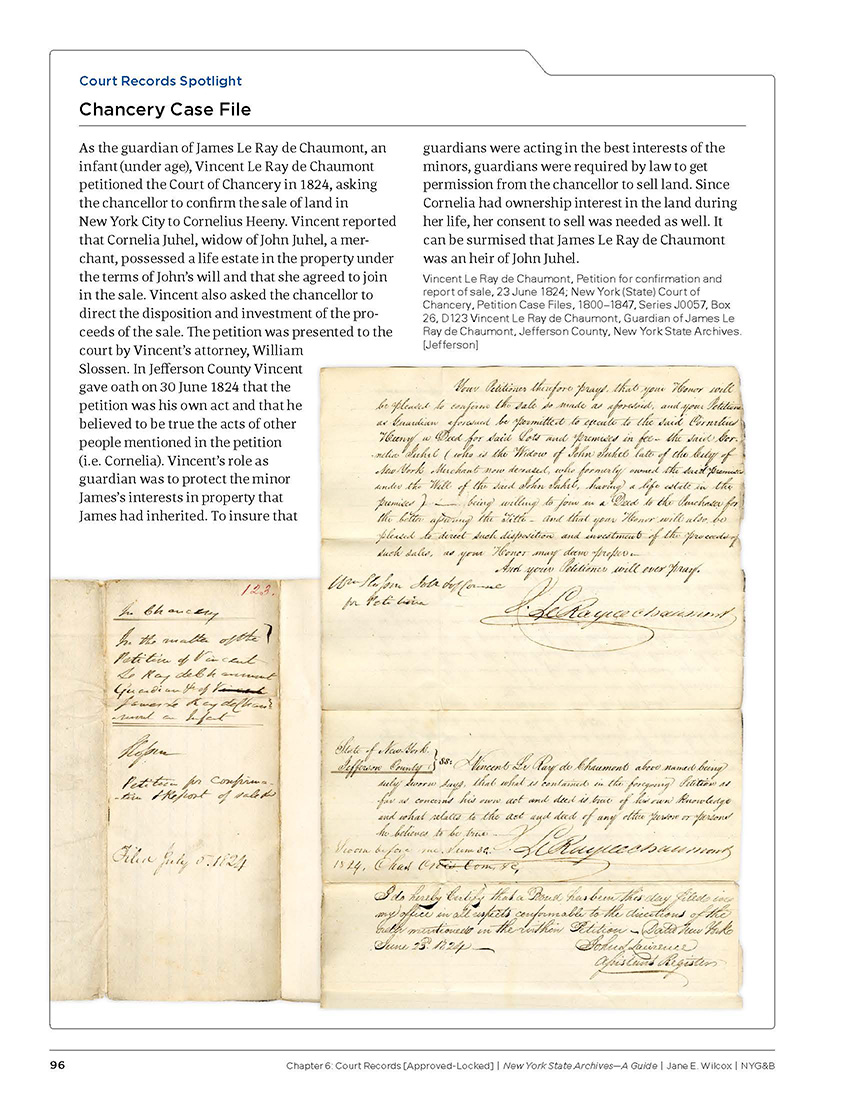 Court Records Spotlight
Chancery Case File
As the guardian of James Le Ray de Chaumont, an
infant (under age), Vincent Le Ray de Chaumont
petitioned the Court of Chancery in 1824, asking
the chancellor to confirm the sale of land in
New York City to Cornelius Heeny. Vincent reported
that Cornelia Juhel, widow of John Juhel, a mer-
chant, possessed a life estate in the property under
the terms of John's will and that she agreed to join
in the sale. Vincent also asked the chancellor to
direct the disposition and investment of the pro-
ceeds of the sale. The petition was presented to the
court by Vincent's attorney, William
Slossen. In Jefferson County Vincent
gave oath on 30 June 1824 that the
petition was his own act and that he
believed to be true the acts of other
people mentioned in the petition
(i.e. Cornelia). Vincent's role as
guardian was to protect the minor
James's interests in property that
James had inherited. To insure that
guardians were acting in the best interests of the
minors, guardians were required by law to get
permission from the chancellor to sell land. Since
Cornelia had ownership interest in the land during
her life, her consent to sell was needed as well. It
can be surmised that James Le Ray de Chaumont
was an heir of John Juhel.
Vincent Le Ray de Chaumont, Petition for confirmation and
report of sale, 23 June 1824; New York (State) Court of
Chancery, Petition Case Files, 1800–1847, Series J0057, Box
26, D123 Vincent Le Ray de Chaumont, Guardian of James Le
Ray de Chaumont, Jefferson County, New York State Archives.
[Jefferson]
Your Petitioner therefore prays, that your Honor will
be pleased to confirm the sale so made as aforesaid, and your Petitioner
as Guardian aforesaid be permitted to execute to the said Cornelius
Heeny a Deed for said Lots and premises in fee - the said Cor-
nelia Juhel (who is the Widow of John Juhel late of the City of
New York Merchant now deceased, who formerly owned the said premises
under the Will of the said John Juhel, having a life estate in the
premises) being willing to join in a Deed to the Purchaser for
the better assuring the Title - and that your Honor will also be
pleased to direct such disposition and investment of the proceeds of
such sales, as your Honor may deem proper -
And your Petitioner will ever pray.
Wm Slosson
for Petitioner
V. LeRaydeChaumont
123.
In Chancery
In the matter of the
Petition of Vincent
Le Ray de Chaumont
Guardian of
James Le Ray de Chau-
mont an Infant
Slosson
Petition for Confirma-
-tion & Report of sales
Filed July 5. 1824
State of New York
Jefferson County } ss: Vincent Le Ray de Chaumont above named being
duly sworn says, that what is contained in the foregoing Petition as
far as concerns his own act and deed is true of his own knowledge
and what relates to the act and deed of any other person or persons
he believes to be true -
Sworn before me June 30. V. LeRaydeChaumont
1824,
I do hereby Certify that a Bond has been this day filed in
my office in all respects conformable to the directions of the
order mentioned in the within Petition - Dated New York
June 23d. 1824 - John Lawrence
Assistant Register
96
Chapter 6: Court Records [Approved-Locked] | New York State Archives—A Guide | Jane E. Wilcox | NYG&B